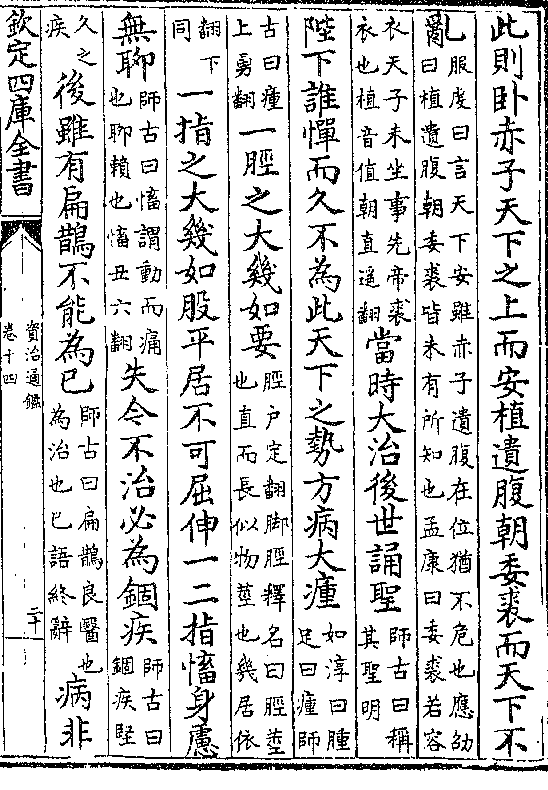 此則卧赤子天下之上而安植遺腹朝委裘而天下不
亂服䖍曰言天下安雖赤子遺腹在位猶不危也應劭曰植遺腹朝委裘皆未有所知也孟康曰委裘若容
衣天子未坐事先帝裘衣也植音值朝直遥翻當時大治後世誦聖師古曰稱其聖明
陛下誰憚而久不為此天下之勢方病大瘇如淳曰腫足曰瘇師
古曰瘇上勇翻一脛之大幾如要脛户定翻脚脛釋名曰脛莖也直而長似物莖也幾居依
翻下同一指之大幾如股平居不可屈伸一二指慉身慮
無聊師古曰慉謂動而痛也聊賴也慉丑六翻失今不治必為錮疾師古曰錮疾堅
久之疾後雖有扁鵲不能為已師古曰扁鵲良醫也為治也已語終辭病非
欽定四庫全書
資治通鑑
卷十四
二十